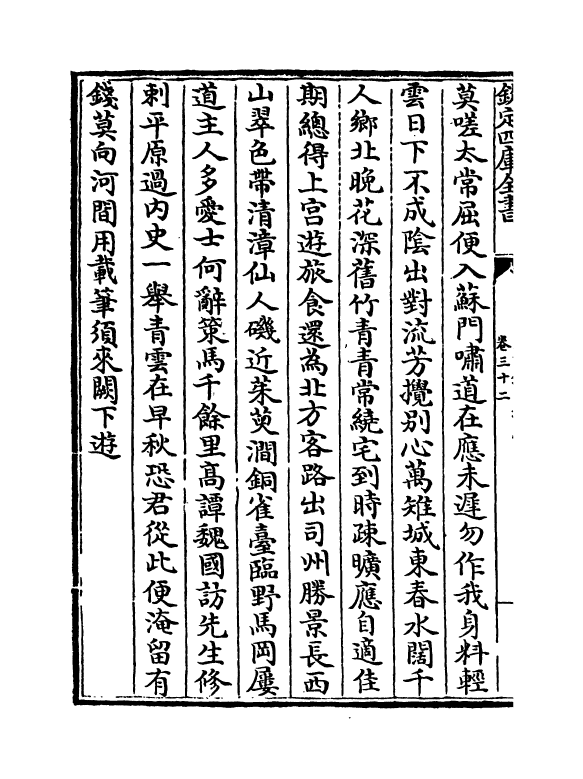 欽定四庫全書
卷三十二
莫嗟太常屈便入蘇門嘯道在應未遲勿作我身料輕
雲日下不成陰出對流芳攪别心萬雉城東春水闊千
人鄉北晚花深舊竹青青常繞宅到時疎曠應自適佳
期總得上宮遊旅食還為北方客路出司州勝景長西
山翠色帶清漳仙人磯近茱萸澗銅雀臺臨野馬岡屢
道主人多愛士何辭策馬千餘里高譚魏國訪先生修
刺平原過内史一舉青雲在早秋恐君從此便淹留有
錢莫向河間用載筆須來闕下遊